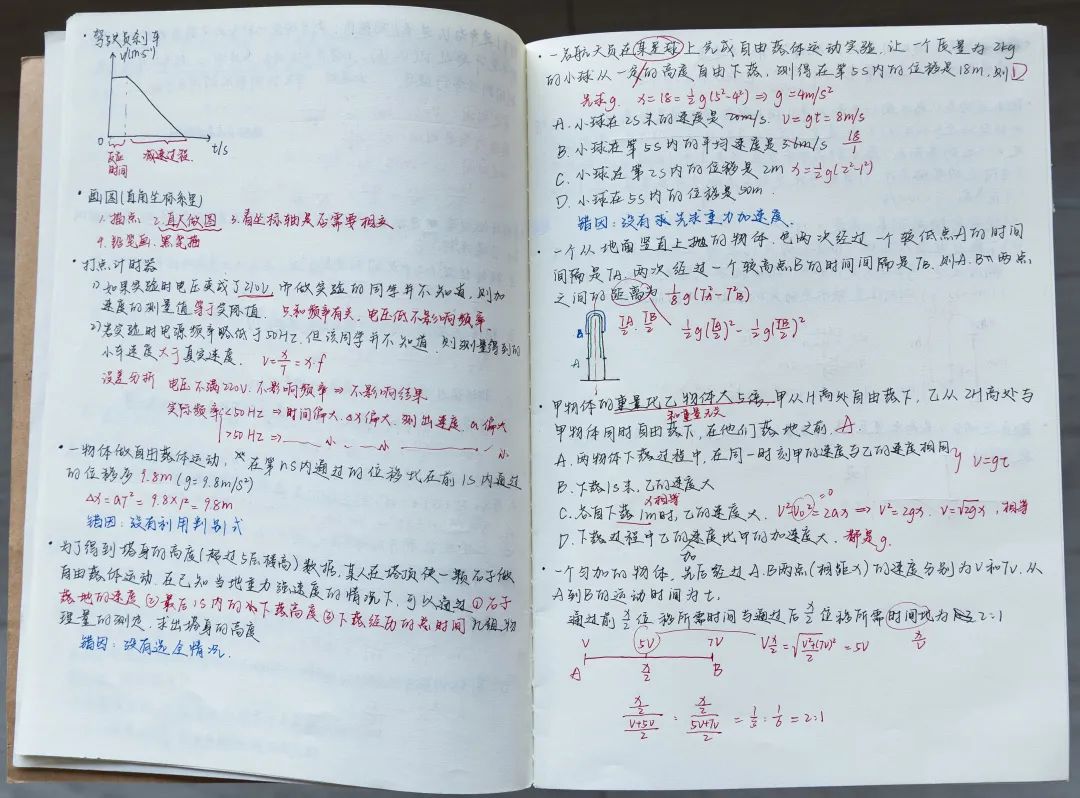 ·驾驶员刹车
v/(m·s⁻¹)
0 t/s
反应时间 减速过程
·画图(直角坐标系里)
1.描点 2.直尺做图 3.看坐标轴是否需要相交
4.铅笔画.黑笔描
·打点计时器
1)如果实验时电压变成了210V.而做实验的同学并不知道,则加
速度的测量值等于实际值. 只和频率有关.电压低不影响频率.
2)若实验时电源频率略低于50Hz.但该同学并不知道.则测量得到的
小车速度大于真实速度. v=x/T=x·f
误差分析 电压不满220V.不影响频率⇒不影响结果
实际频率<50Hz⇒时间偏大.Δx偏大.测出速度.a偏大
>50Hz⇒ 小 小 小
·一物体做自由落体运动,在第ns内通过的位移比在前1s内通过
的位移多9.8m(g=9.8m/s²)
Δx=aT²=9.8×1²=9.8m
错因:没有利用判别式
·为了得到塔身的高度(超过5层楼高)数据.某人在塔顶使一颗石子做
自由落体运动.在已知当地重力加速度的情况下,可以通过①石子
落地的速度②最后1s内的下落高度③下落经历的总时间几组物
理量的测定.求出塔身的高度
错因:没有选全情况.
·一名航天员在某星球上完成自由落体运动实验.让一个质量为2kg
的小球从一定的高度自由下落,测得在第5s内的位移是18m,则D
先求g. x=18=½g(5²-4²)⇒g=4m/s²
A.小球在2s末的速度是20m/s. v=gt=8m/s
B.小球在第5s内的平均速度是3.6m/s 18/1
C.小球在第2s内的位移是2m x=½g(2²-1²)
D.小球在5s内的位移是50m.
错因:没有求先求重力加速度.
·一个从地面竖直上抛的物体.它两次经过一个较低点A的时间
间隔是TA.两次经过一个较高点B的时间间隔是TB.则A.B两点
之间的距离为 ⅛g(T²A-T²B)
B TA/2. TB/2 ½g(TA/2)²-½g(TB/2)²
A
·甲物体的重量比乙物体大5倍.甲从H高处自由落下,乙从2H高处与
和重量无关
甲物体同时自由落下,在他们落地之前.A
A.两物体下落过程中,在同一时刻甲的速度与乙的速度相同 v=gt
B.下落1s末,乙的速度大
x相等 =0
C.各自下落1m时,乙的速度大. v²-v₀²=2ax⇒v²=2gx. v=√2gx,相等
D.下落过程中乙的加速度比甲的加速度大. 都是g.
·一个匀加的物体,先后经过A.B两点(相距x)的速度分别为v和7v.从
A到B的运动时间为t.
通过前x/2位移所需时间与通过后x/2位移所需时间比为2:1
V 5V 7V v x/2=√(v²+(7v)²/2)=5v x/v
A x/2 B
(x/2)/((v+5v)/2):(x/2)/((5v+7v)/2)=1/3:1/6=2:1